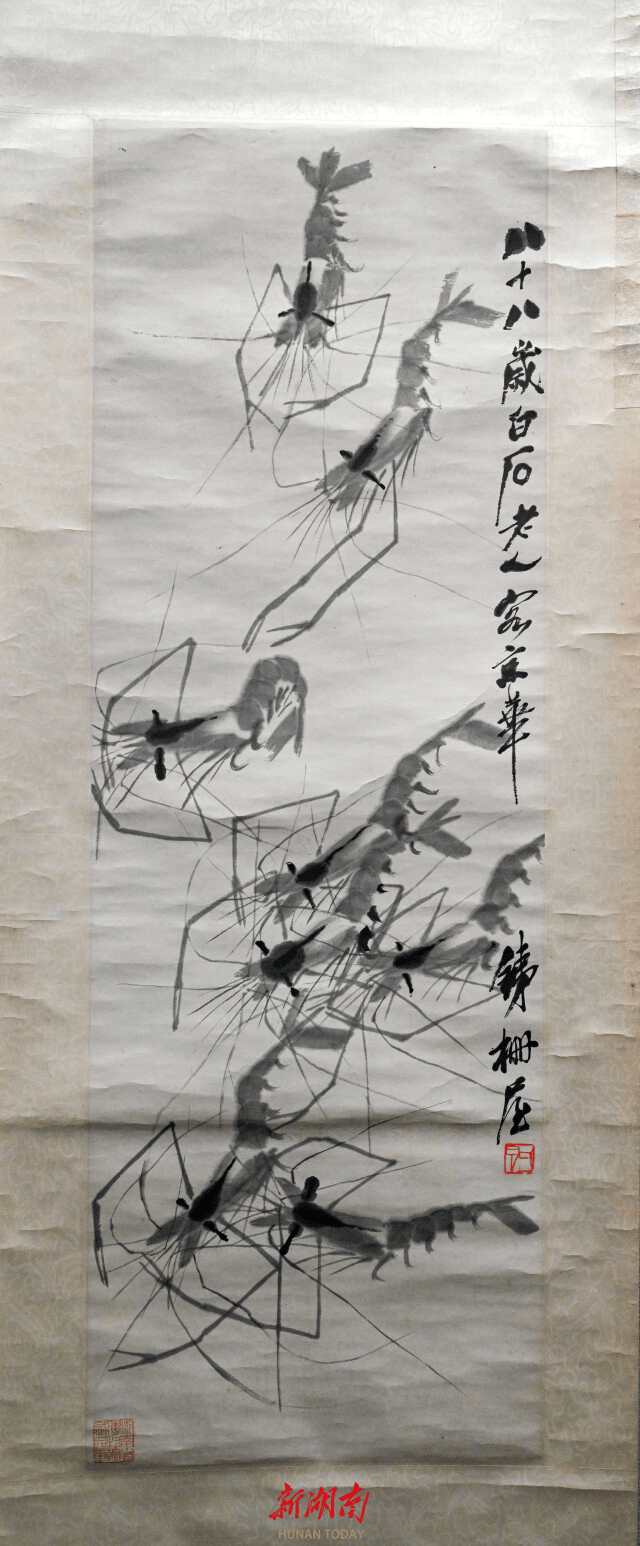 八十八歲白石老人客京華
鐵柵屋
新湖南
HUNAN TODAY